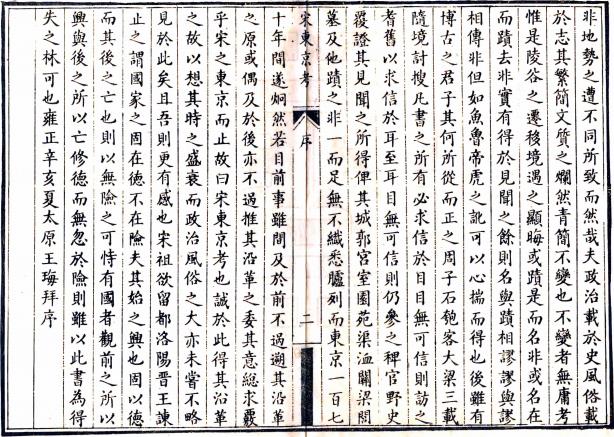 非地勢之遭不同所致而然哉夫政治載於史風俗載
於志其繁簡文質之爛然青簡不變也不變者無庸考
惟是陵谷之遷移境遇之顯晦或蹟是而名非或名在
而蹟去非實有得於見聞之餘則名與蹟相謬謬與謬
相傳非但如魚魯帝虎之訛可以心揣而得也後雖有
博古之君子其何所從而正之周子石匏客大梁三載
隨境討搜凡書之所有必求信於目目無可信則訪之
耆舊以求信於耳至耳目無可信則仍參之稗官野史
覆證其見聞之所得俾其城郭宮室園苑渠洫關梁
墓及他蹟之非一而足無不纖悉臚列而東京一百七
宋東京考 序 二
十年間遂炯然若目前事雖間及於前不過遡其沿革
之原或偶及於後亦不過推其沿革之委其意總求覈
乎宋之東京而止故曰宋東京考也誠於此得其沿革
之故以想其時之盛衰而政治風俗之大亦未嘗不略
見於此矣且吾則更有感也宋祖欲留都洛陽晉王諫
止之謂國家之固在德不在險夫其始之興也固以德
而其後之亡也則以無險之可恃有國者觀前之所以
興與後之所以亡修德而無忽於險則雖以此書為得
失之林可也雍正辛亥夏太原王珻拜序